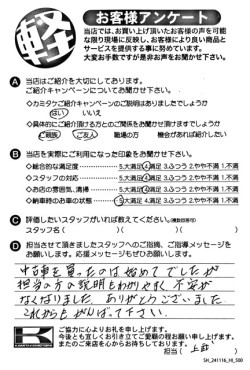 軽
お客様アンケート
当店では、お買い上げ頂いたお客様の声を可能
な限り現場に反映し、お客様により良い商品と
サービスを提供する事に努めています。
大変お手数ですが是非お声をお聞かせ下さい。
A 当店はご紹介を大切にしております。
ご紹介キャンペーンについてお聞かせ下さい。
◇カミタケご紹介キャンペーンのご説明はありましたでしょうか
はい いいえ
◇具体的にご紹介頂ける方とのご関係をお聞かせ頂けますでしょうか
ご親族 ご友人 職場の方 機会があれば紹介したい
B 当店を実際にご利用になった印象をお聞かせ下さい。
◇総合的な満足度 5.大満足 4.満足 3.ふつう 2.やや不満 1.不満
◇スタッフの対応 5.大満足 4.満足 3.ふつう 2.やや不満 1.不満
◇お店の雰囲気、清掃 5.大満足 4.満足 3.ふつう 2.やや不満 1.不満
◇納車時のお車の状態 5.大満足 4.満足 3.ふつう 2.やや不満 1.不満
C 評価したいスタッフがいれば教えてください。(複数回答可)
スタッフ名( )( )( )
D 担当させて頂きましたスタッフへのご指摘、ご指導メッセージを
お願いします。応援メッセージもぜひお願いします。
中古車を買ったのは始めてでしたが
担当の方の説明もわかりやすく不安が
なくなりました。ありがとうございました。
これからもがんばって下さい。
ご協力に心よりお礼を申し上げます。
今後とも宜しくお引き立てご愛顧の程お願い申し上げます。
またのご来店を心からお待ちしております。
担当( 上武 )
SH_241116_HI_500